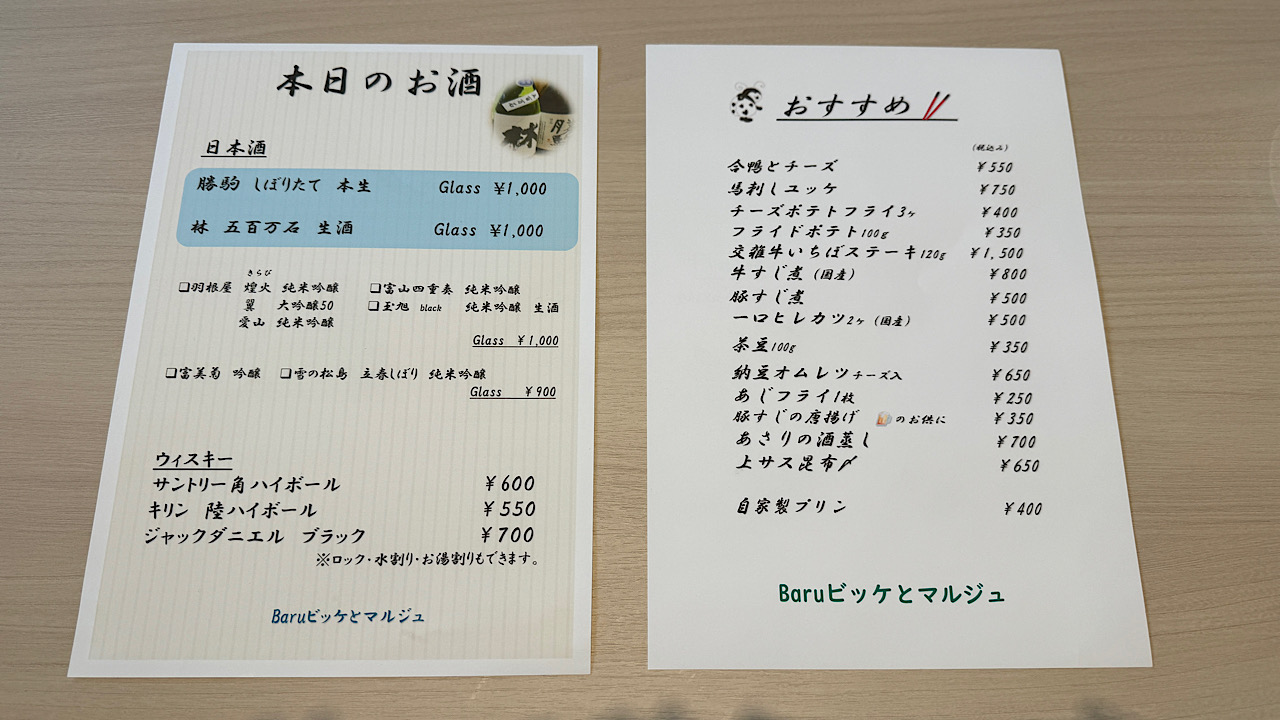 本日のお酒
日本酒
勝駒 しぼりたて 本生 Glass ¥1,000
林 五百万石 生酒 Glass ¥1,000
きらび
❏羽根屋 煌火 純米吟醸 ❏富山四重奏 純米吟醸
翼 大吟醸50 ❏玉旭 black 純米吟醸 生酒
愛山 純米吟醸
Glass ¥1,000
❏富美菊 吟醸 ❏雪の松島 立春しぼり 純米吟醸
Glass ¥900
ウィスキー
サントリー角ハイボール ¥600
キリン 陸ハイボール ¥550
ジャックダニエル ブラック ¥700
※ロック・水割り・お湯割りもできます。
Baruビッケとマルジュ
林
おすすめ
(税込み)
合鴨とチーズ ¥550
馬刺しユッケ ¥750
チーズポテトフライ3ヶ ¥400
フライドポテト100g ¥350
交雑牛いちばステーキ120g ¥1,500
牛すじ煮(国産) ¥800
豚すじ煮 ¥500
一口ヒレカツ2ヶ(国産) ¥500
茶豆100g ¥350
納豆オムレツチーズ入 ¥650
あじフライ1枚 ¥250
豚すじの唐揚げ 🍺のお供に ¥350
あさりの酒蒸し ¥700
上サス昆布〆 ¥650
自家製プリン ¥400
Baruビッケとマルジュ